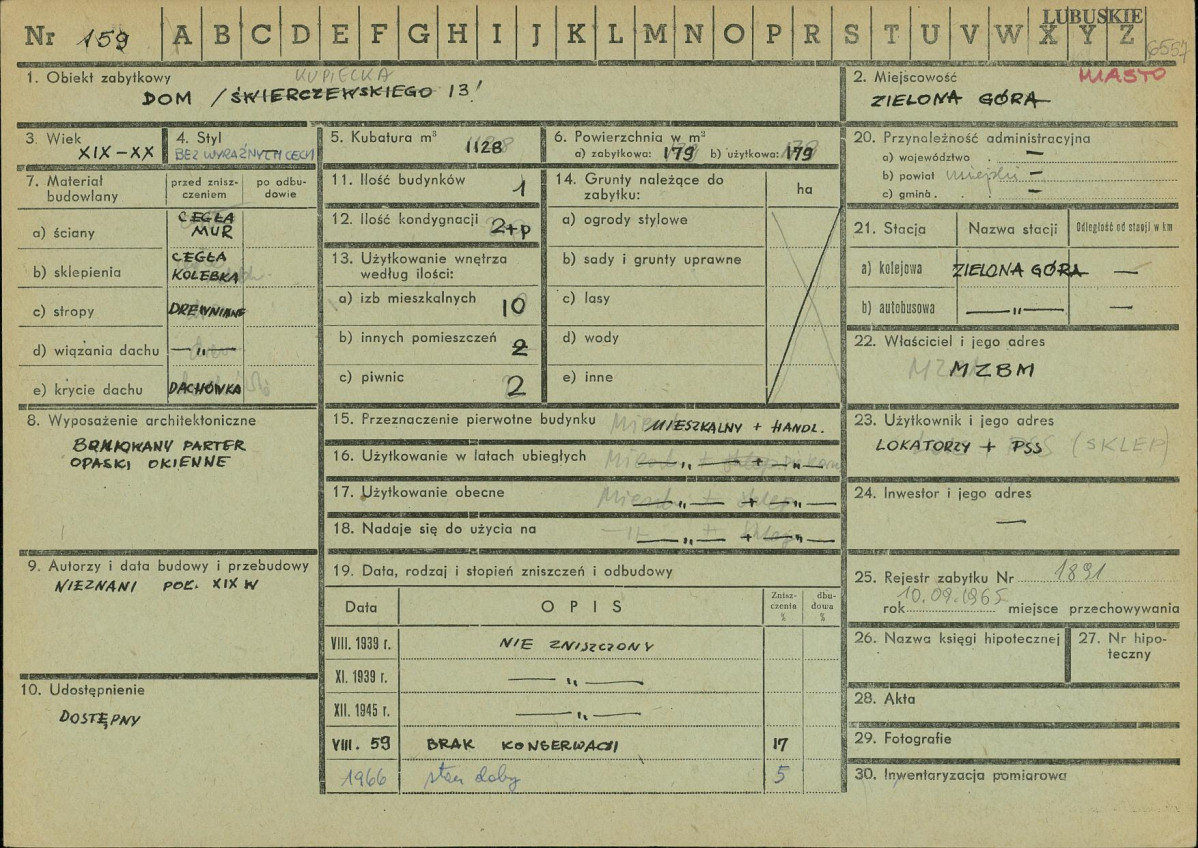 LUBUSKIE
Nr 159 A B C D E F G H I J K L M N O P R S T U V W X Y Z
6557
1. Obiekt zabytkowy
KUPIECKA
DOM / ŚWIERCZEWSKIEGO 13!
2. Miejscowość
MIASTO
ZIELONA GÓRA
3. Wiek
XIX-XX
4. Styl
BEZ WYRAŹNYCH CECH
5. Kubatura m³ 1128
6. Powierzchnia w m²
a) zabytkowa: 179 b) użytkowa: 179
20. Przynależność administracyjna
a) województwo . —
b) powiat miejski —
c) gmina . —
7. Materiał budowlany
przed zniszczeniem
po odbudowie
a) ściany CEGŁA
MUR
b) sklepienia CEGŁA
KOLEBKA
c) stropy DREWNIANE
d) wiązania dachu —„—
e) krycie dachu DACHÓWKA
11. Ilość budynków 1
12. Ilość kondygnacji 2+p
13. Użytkowanie wnętrza
według ilości:
a) izb mieszkalnych 10
b) innych pomieszczeń 2
c) piwnic 2
14. Grunty należące do
zabytku:
ha
a) ogrody stylowe
b) sady i grunty uprawne
c) lasy
d) wody
e) inne
21. Stacja Nazwa stacji Odległość od stacji w km
a) kolejowa ZIELONA GÓRA —
b) autobusowa —„— —
22. Właściciel i jego adres
MZBM
8. Wyposażenie architektoniczne
BONIOWANY PARTER
OPASKI OKIENNE
15. Przeznaczenie pierwotne budynku MIESZKALNY + HANDL.
16. Użytkowanie w latach ubiegłych —„— + —„—
17. Użytkowanie obecne —„— + —„—
18. Nadaje się do użycia na —„— + —„—
23. Użytkownik i jego adres
LOKATORZY + PSS (SKLEP)
24. Inwestor i jego adres
—
9. Autorzy i data budowy i przebudowy
NIEZNANI POŁ. XIX W
19. Data, rodzaj i stopień zniszczeń i odbudowy
Data OPIS Zniszczenia % dbudowa %
VIII. 1939 r. NIE ZNISZCZONY
XI. 1939 r. —„—
XII. 1945 r. —„—
VIII. 59 BRAK KONSERWACJI 17
1966 stan dobry 5
10. Udostępnienie
DOSTĘPNY
25. Rejestr zabytku Nr 1891
rok 10.09.1965 miejsce przechowywania
26. Nazwa księgi hipotecznej
27. Nr hipoteczny
28. Akta
29. Fotografie
30. Inwentaryzacja pomiarowa